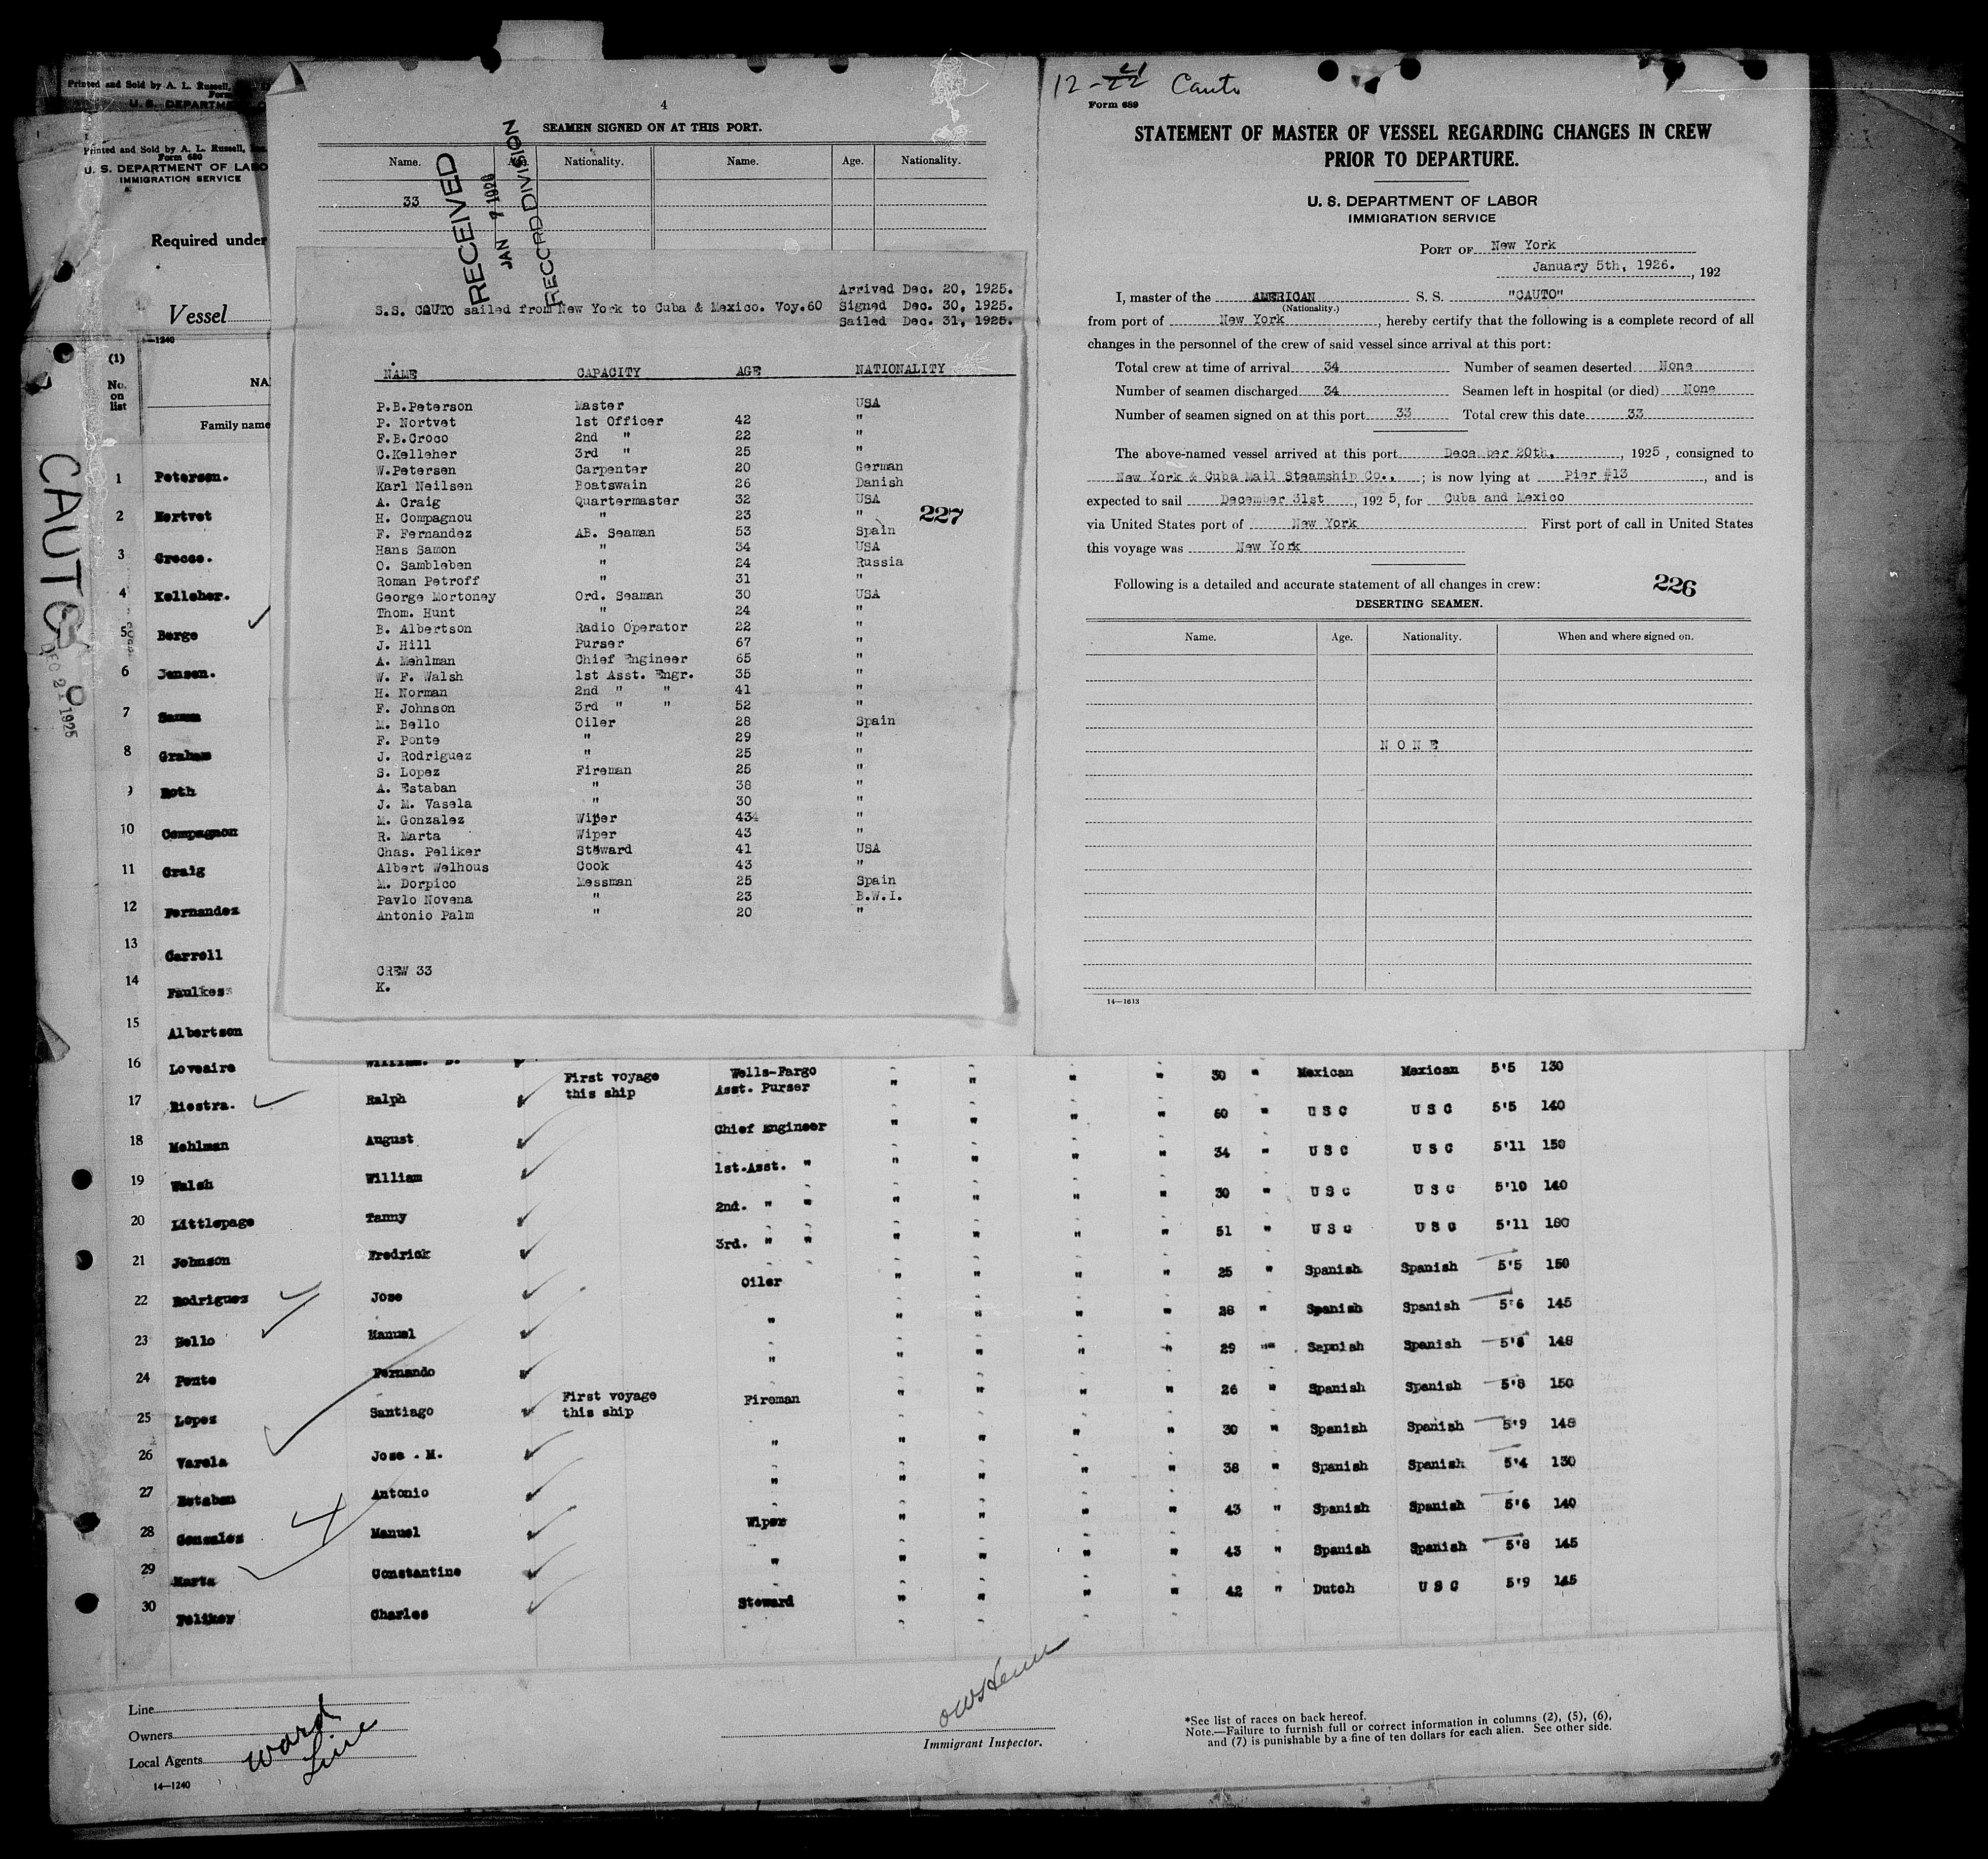 Printed and Sold by A. L. Russell,
Form
U. S. DEPARTM
Printed and Sold by A. L. Russell, Inc.
Form 680
U. S. DEPARTMENT OF LABO
IMMIGRATION SERVICE
Required under
Vessel
14—1240
(1)
No.
on
list
NA
Family name
CAUTO
DEC 21 1925
4
SEAMEN SIGNED ON AT THIS PORT.
Name. Nationality. Name. Age. Nationality.
33
RECEIVED
JAN 7 1926
RECORD DIVISION
Arrived Dec. 20, 1925.
S.S. CAUTO sailed from New York to Cuba & Mexico. Voy.60 Signed Dec. 30, 1925.
Sailed Dec. 31, 1925.
NAME CAPACITY AGE NATIONALITY
P.B.Peterson Master USA
P. Nortvet 1st Officer 42 "
F.B.Croco 2nd " 22 "
C.Kelleher 3rd " 25 "
W.Petersen Carpenter 20 German
Karl Neilsen Boatswain 26 Danish
A. Craig Quartermaster 32 USA
H. Compagnou " 23 "
227
F. Fernandez AB. Seaman 53 Spain
Hans Samon " 34 USA
O. Sambleben " 24 Russia
Roman Petroff " 31 "
George Mortoney Ord. Seaman 30 USA
Thom. Hunt " 24 "
B. Albertson Radio Operator 22 "
J. Hill Purser 67 "
A. Mehlman Chief Engineer 65 "
W. F. Walsh 1st Asst. Engr. 35 "
H. Norman 2nd " " 41 "
F. Johnson 3rd " " 52 "
M. Bello Oiler 28 Spain
F. Ponte " 29 "
J. Rodriguez " 25 "
S. Lopez Fireman 25 "
A. Estaban " 38 "
J. M. Vasela " 30 "
M. Gonzalez Wiper 434 "
R. Marta Wiper 43 "
Chas. Peliker Steward 41 USA
Albert Welhous Cook 43 "
M. Dorpico Messman 25 Spain
Pavlo Novena " 23 B.W.I.
Antonio Palm " 20 "
CREW 33
K.
12-21 Cauto
Form 689
STATEMENT OF MASTER OF VESSEL REGARDING CHANGES IN CREW
PRIOR TO DEPARTURE.
U. S. DEPARTMENT OF LABOR
IMMIGRATION SERVICE
PORT OF New York
January 5th, 1926. , 192
I, master of the AMERICAN S. S. "CAUTO"
(Nationality.)
from port of New York , hereby certify that the following is a complete record of all
changes in the personnel of the crew of said vessel since arrival at this port:
Total crew at time of arrival 34 Number of seamen deserted None
Number of seamen discharged 34 Seamen left in hospital (or died) None
Number of seamen signed on at this port 33 Total crew this date 33
The above-named vessel arrived at this port December 20th, , 1925 , consigned to
New York & Cuba Mail Steamship Co., ; is now lying at Pier #13 , and is
expected to sail December 31st , 192 5, for Cuba and Mexico
via United States port of New York First port of call in United States
this voyage was New York
Following is a detailed and accurate statement of all changes in crew:
226
DESERTING SEAMEN.
Name. Age. Nationality. When and where signed on.
N O N E
14—1613
1 Petersen.
2 Nortvet
3 Crocco.
4 Kelleher.
5 Berge
6 Jensen.
7 Samun
8 Graham
9 Roth
10 Compagnon
11 Craig
12 Fernandez
13 Carroll
14 Faulkes
15 Albertson
16 Loveaire William. D.
17 Riestra. Ralph First voyage this ship Wells-Fargo Asst. Purser " " " " 30 " Mexican Mexican 5'5 130
18 Mehlman August Chief Engineer " " " " 60 " U S C U S C 5'5 140
19 Walsh William 1st.Asst. " " " " " 34 " U S C U S C 5'11 150
20 Littlepage Tanny 2nd. " " " " " " 30 " U S C U S C 5'10 140
21 Johnson Fredrick 3rd. " " " " " " 51 " U S C U S C 5'11 180
22 Rodriguez Jose Oiler " " " " 25 " Spanish Spanish 5'5 150
23 Bello Manuel " " " " " 28 " Spanish Spanish 5'6 145
24 Ponte Fernando " " " " " 29 "" Sapnish Spanish 5'8 148
25 Lopez Santiago First voyage this ship Fireman " " " " 26 " Spanish Spanish 5'8 150
26 Varela Jose . M. " " " " " 30 " Spanish Spanish 5'9 148
27 Estaban Antonio " " " " " 38 " Spanish Spanish 5'4 130
28 Gonzales Manuel Wiper " " " " 43 " Spanish Spanish 5'6 140
29 Marta Constantine " " " " " 43 " Spanish Spanish 5'8 145
30 Peliker Charles Steward " " " " 42 " Dutch U S C 5'9 145
Line
Owners
Local Agents
Ward
Line
14—1240
Immigrant Inspector.
*See list of races on back hereof.
Note.—Failure to furnish full or correct information in columns (2), (5), (6),
and (7) is punishable by a fine of ten dollars for each alien. See other side.